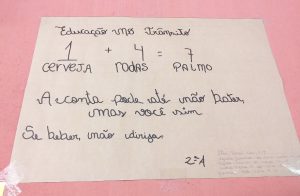 Educação no Trânsito
1 + 4 = 7
CERVEJA RODAS PALMO
A conta pode até não bater,
mas você sim
Se beber, não dirija.
2ºA